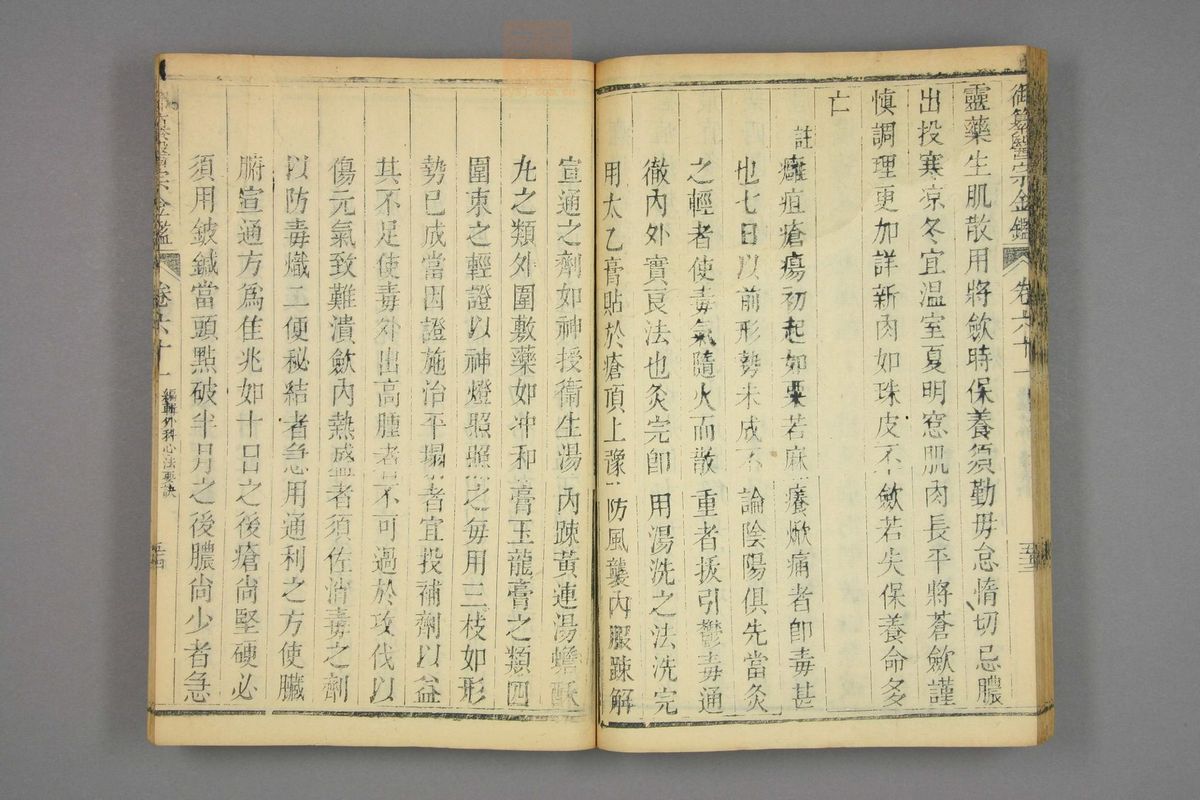 御纂醫宗金鑑
卷六十一
靈藥生肌散用將斂時保養須勤毋怠惰切忌膿
出投寒凉冬宜溫室夏明窓肌肉長平將蒼斂謹
慎調理更加詳新肉如珠皮不斂若失保養命多
亡
註癰疽瘡瘍初起如粟若麻癢焮痛者即毒甚
也七日以前形勢未成不論陰陽俱先當灸
之輕者使毒氣隨火而散重者拔引鬱毒通
徹內外實良法也灸完即用湯洗之法洗完
用太乙膏貼於瘡頂上豫防風襲內服疎解
宣通之劑如神授衛生湯內踈黃連湯蟾酥
丸之類外圍敷藥如冲和膏玉龍膏之類四
圍束之輕證以神燈照照之每用三枝如形
勢已成當因證施治平塌者宜投補劑以益
其不足使毒外出高腫者不可過於攻伐以
傷元氣致難潰斂內熱盛者須佐消毒之劑
以防毒熾二便秘結者急用通利之方使臟
腑宣通方為佳兆如十日之後瘡尚堅硬必
須用鈹鍼當頭點破半月之後膿尚少者急
宗金鑑
卷六十一
編輯外科心法要訣